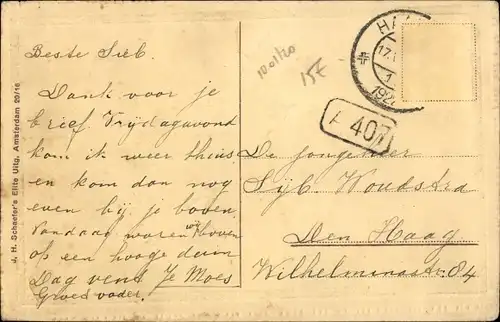 Beste Sieb.
Dank voor je
brief. Vrijdagavond
kom ik weer thuis
en kom dan nog
even bij je boven.
Vandaag waren wij boven
op een hooge duin
Dag vent Je Moes
Groet vader.
J. H. Schaefer's Elite Uitg. Amsterdam 20/16
1001/20
15E
HA
17.
1
192
A 407
De jongeheer
Sijb. Woudstra
Den Haag
Wilhelminastr. 84